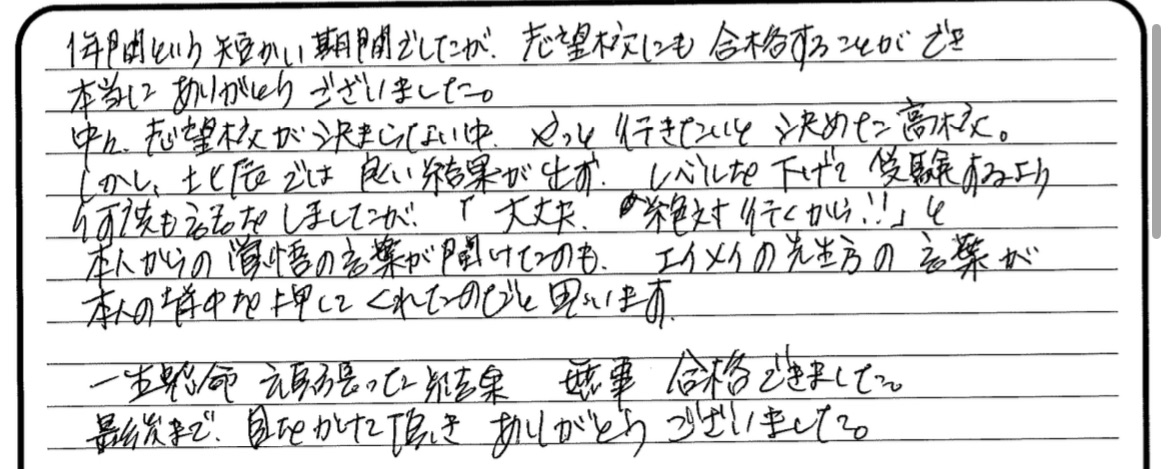 1年間という短かい期間でしたが、志望校にも合格することができ
本当にありがとうございました。
中々、志望校が決まらない中、やっと行きたいと決めた高校。
しかし、北辰では良い結果が出ず、レベルを下げて受験するより
何度も話をしましたが、「大丈夫、絶対行くから!!」と
本人からの覚悟の言葉が聞けたのも、エイメイの先生方の言葉が
本人の背中を押してくれたのだと思います。
一生懸命頑張った結果 無事 合格できました。
最後まで、目をかけて頂き ありがとうございました。